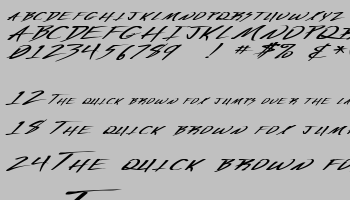 ABCDEFGHIJKLMNOPQRSTUVWXYZ
ABCDEFGHIJKLMNOPQR
0123456789 ! # $% & *
12 THE QUICK BROWN FOX JUMPS OVER THE LA
18 THE QUICK BROWN FOX JUM
24 THE QUICK BROWN FO
T